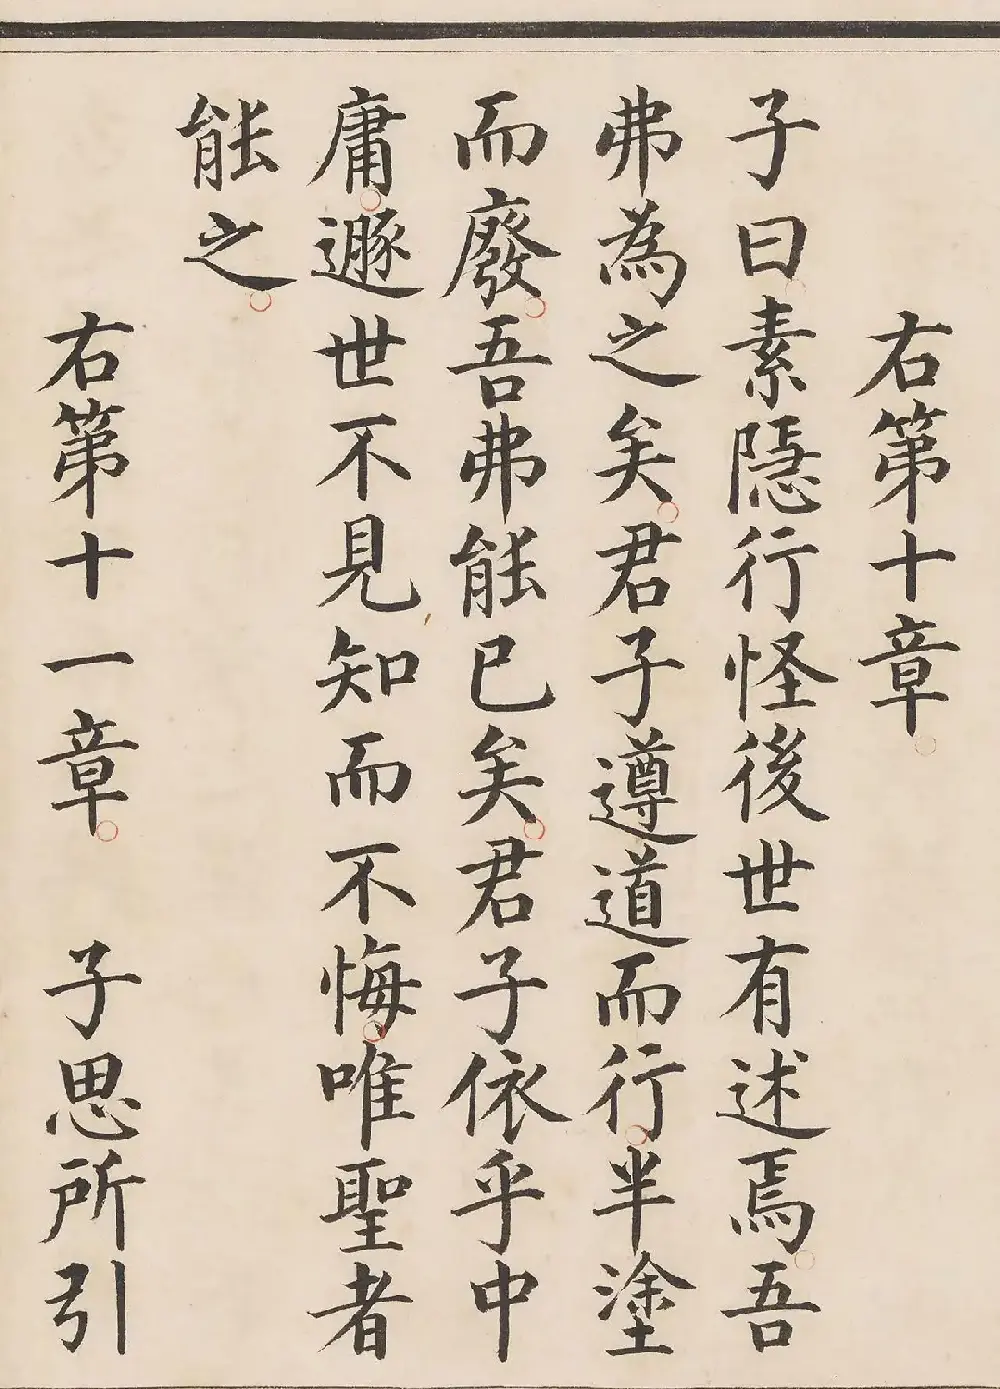 右第十章
子曰素隱行怪後世有述焉吾
弗為之矣君子遵道而行半塗
而廢吾弗能已矣君子依乎中
庸遯世不見知而不悔唯聖者
能之
右第十一章 子思所引